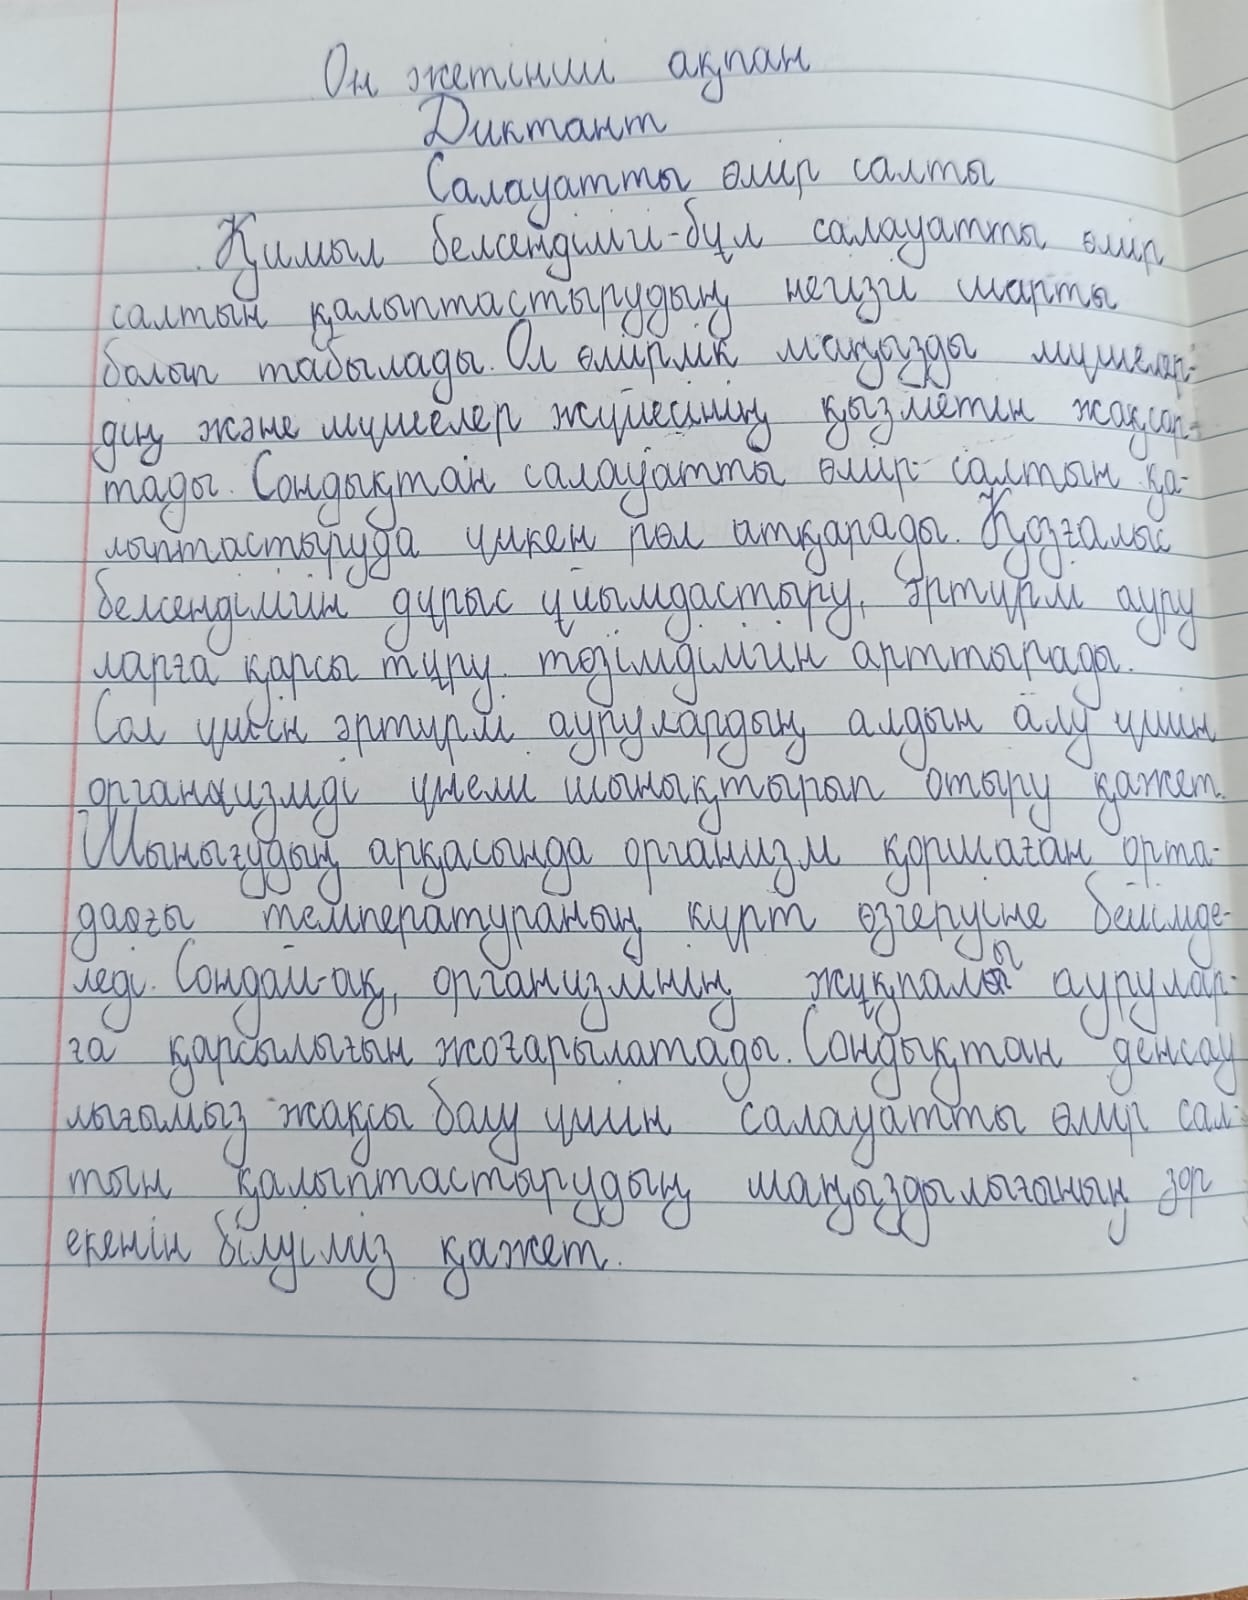 Он жетінші ақпан
Диктант
Салауатты өмір салты
Қимыл белсенділігі-бұл салауатты өмір
салтын қалыптастырудың негізгі шарты
болып табылады. Ол өмірлік маңызды мүшелер-
дің және мүшелер жүйесінің қызметін жақсар-
тады. Сондықтан салауатты өмір салтын қа-
лыптастыруда үлкен рөл атқарады. Қозғалыс
белсенділігін дұрыс ұйымдастыру, әртүрлі ауру
ларға қарсы тұру төзімділігін арттырады.
Сол үшін әртүрлі аурулардың алдын алу үшін
организмді үнемі шынықтырып отыру қажет.
Шынығудың арқасында организм қоршаған орта-
дағы температураның күрт өзгеруіне бейімде-
леді. Сондай-ақ, организмнің жұқпалы аурулар-
ға қарсылығын жоғарылатады. Сондықтан денсау
лығымыз жақсы болу үшін салауатты өмір сал-
тын қалыптастырудың маңыздылығының зор
екенін білуіміз қажет.